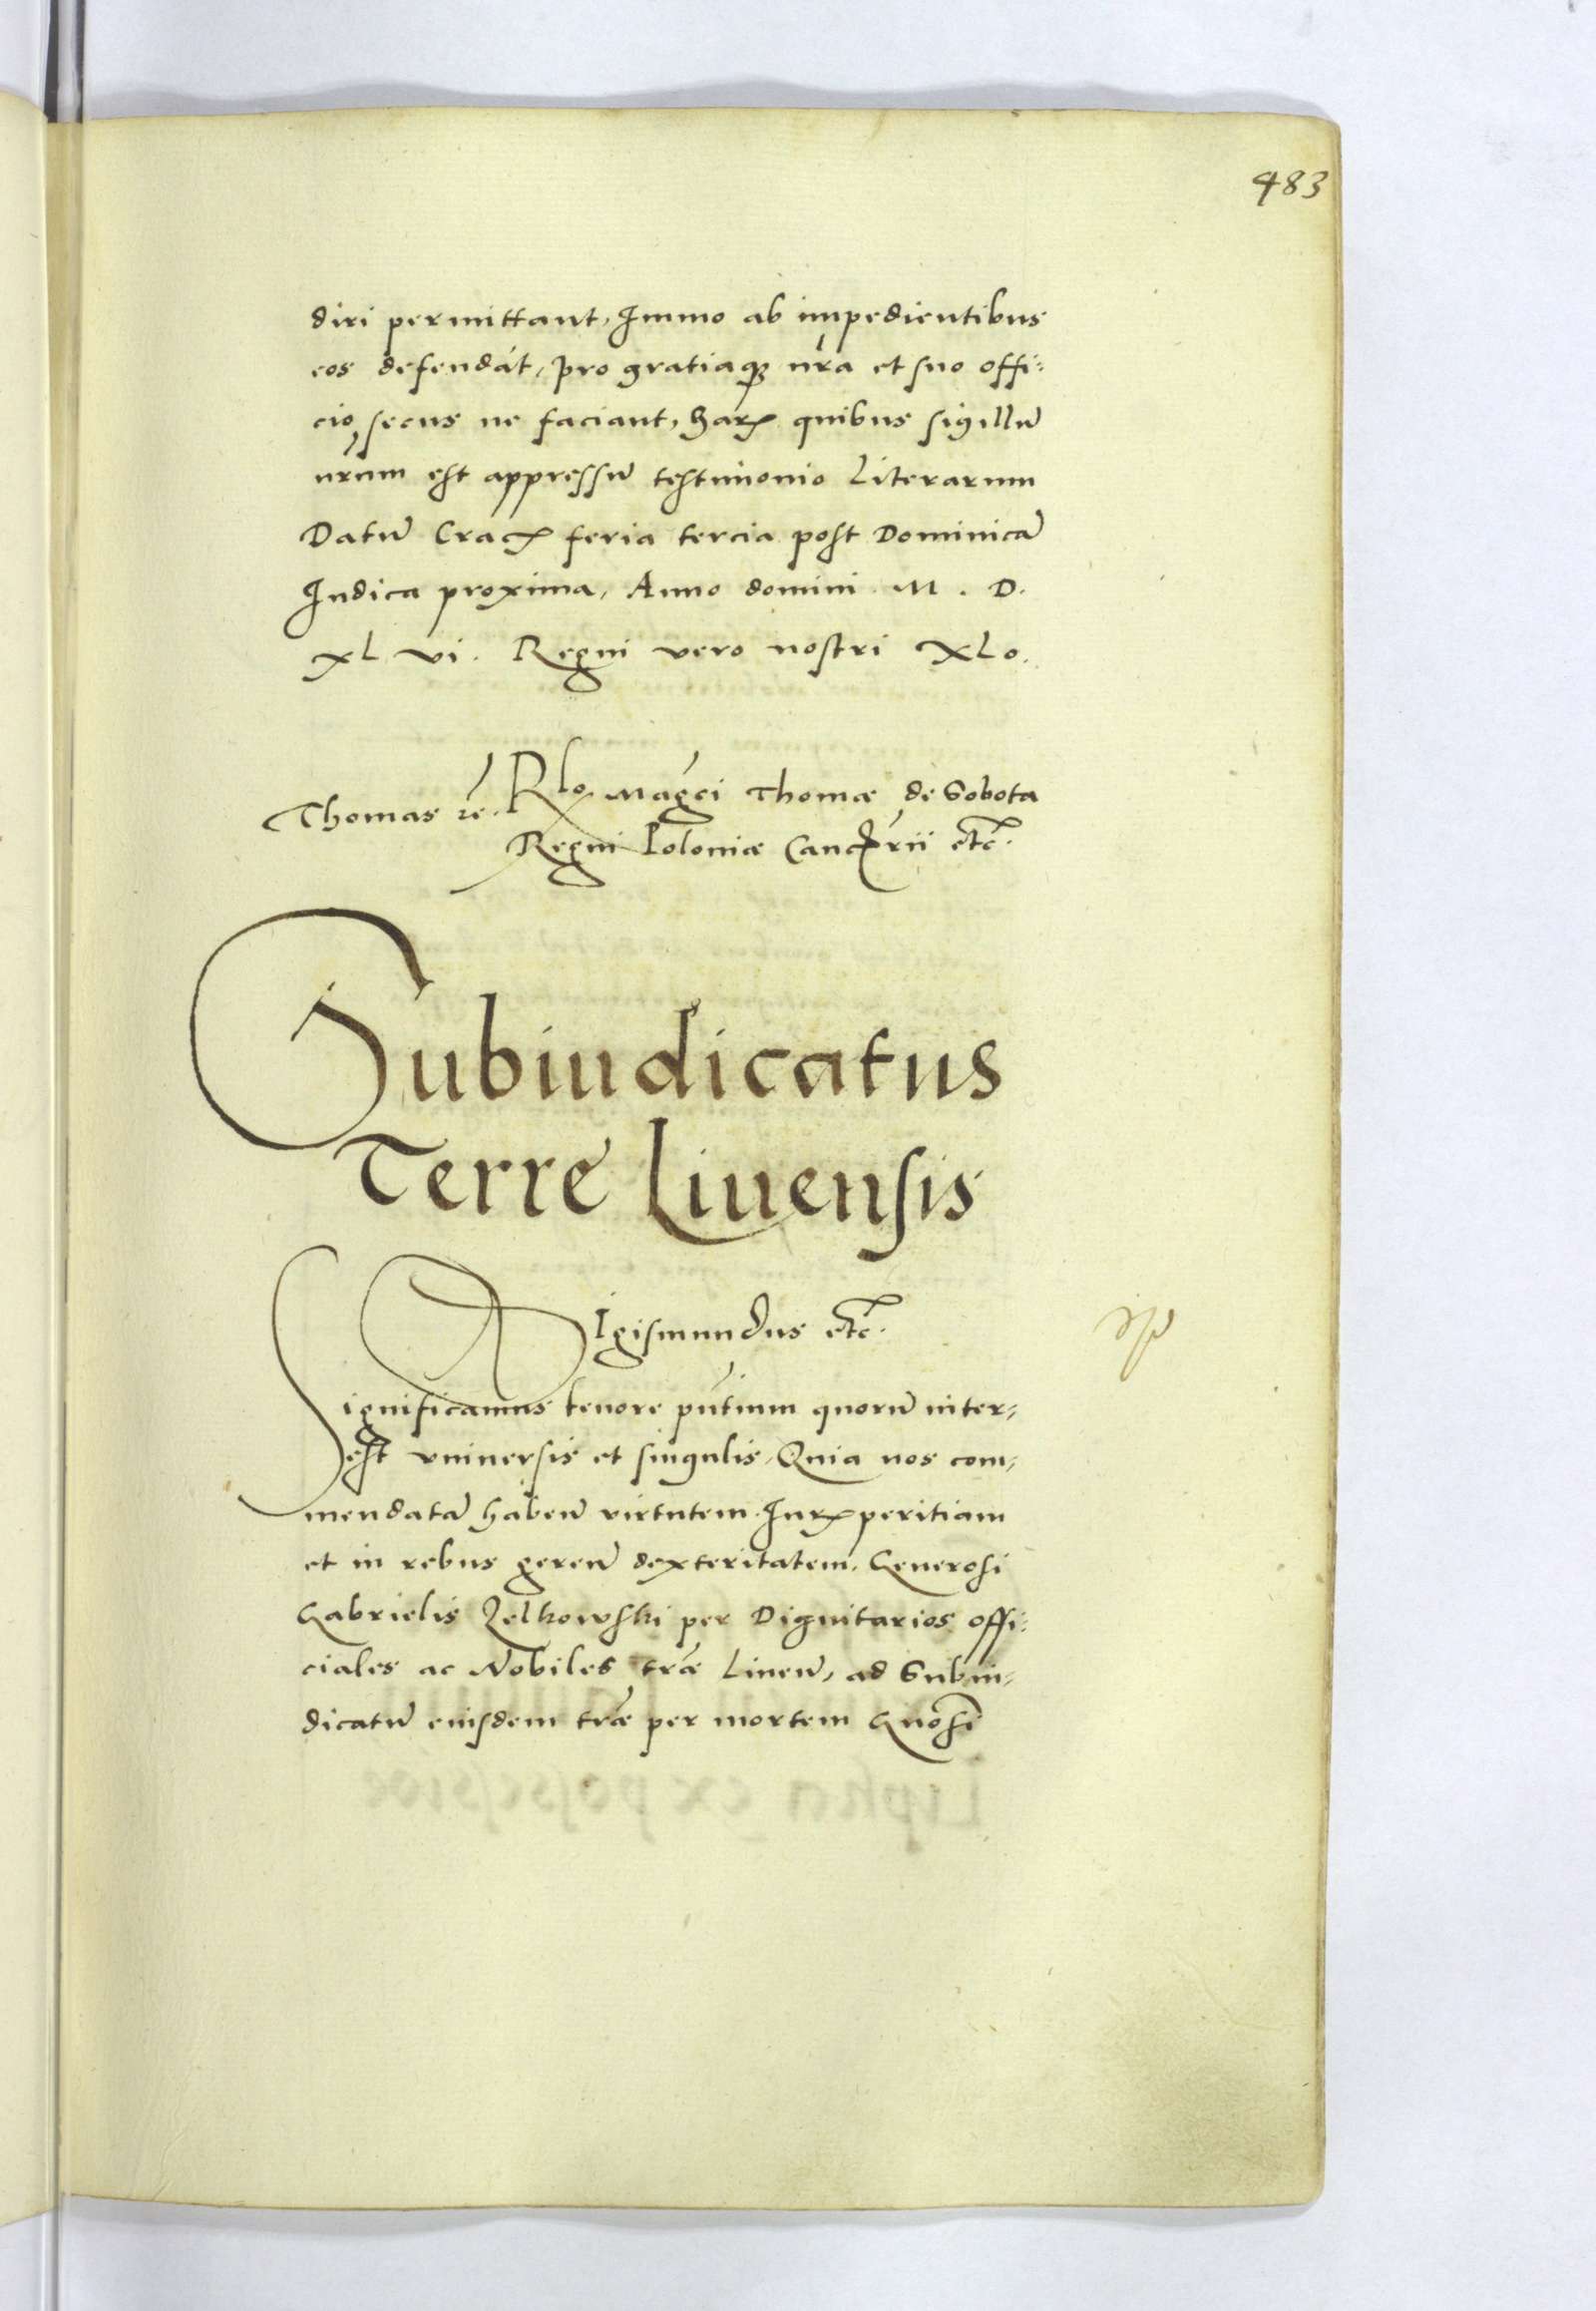 483
diri permittant, Immo ab impedientibus
eos defendāt, pro gratiaqꝫ nrā et suo offi:
cio, secus ne faciant, Harꝝ quibus sigillū
nrum est appressū testimonio Literarum
Datū Cracꝫ feria tercia post Dominicā
Iudica proxima, Anno domini M. D.
XL vi. Regni vero nostri XLo.
Rlo Magci Thomæ de Sobota
Thomas
Regni Poloniæ Cancrii etc.
Subiudicatus
Terre Liuensis
SIgismundus etc.
Significamus tenore pntium quorū inter,
est vniuersis et singulis, Quia nos com,
mendatā habeñ virtutem Iurꝝ peritiam
et in rebus gereñ dexteritatem, Generosi
Gabrielis Zelkowski per Dignitarios offi:
ciales ac Nobiles træ Liueñ, ad Subiu,
dicatū eiusdem træ per mortem Gnosi